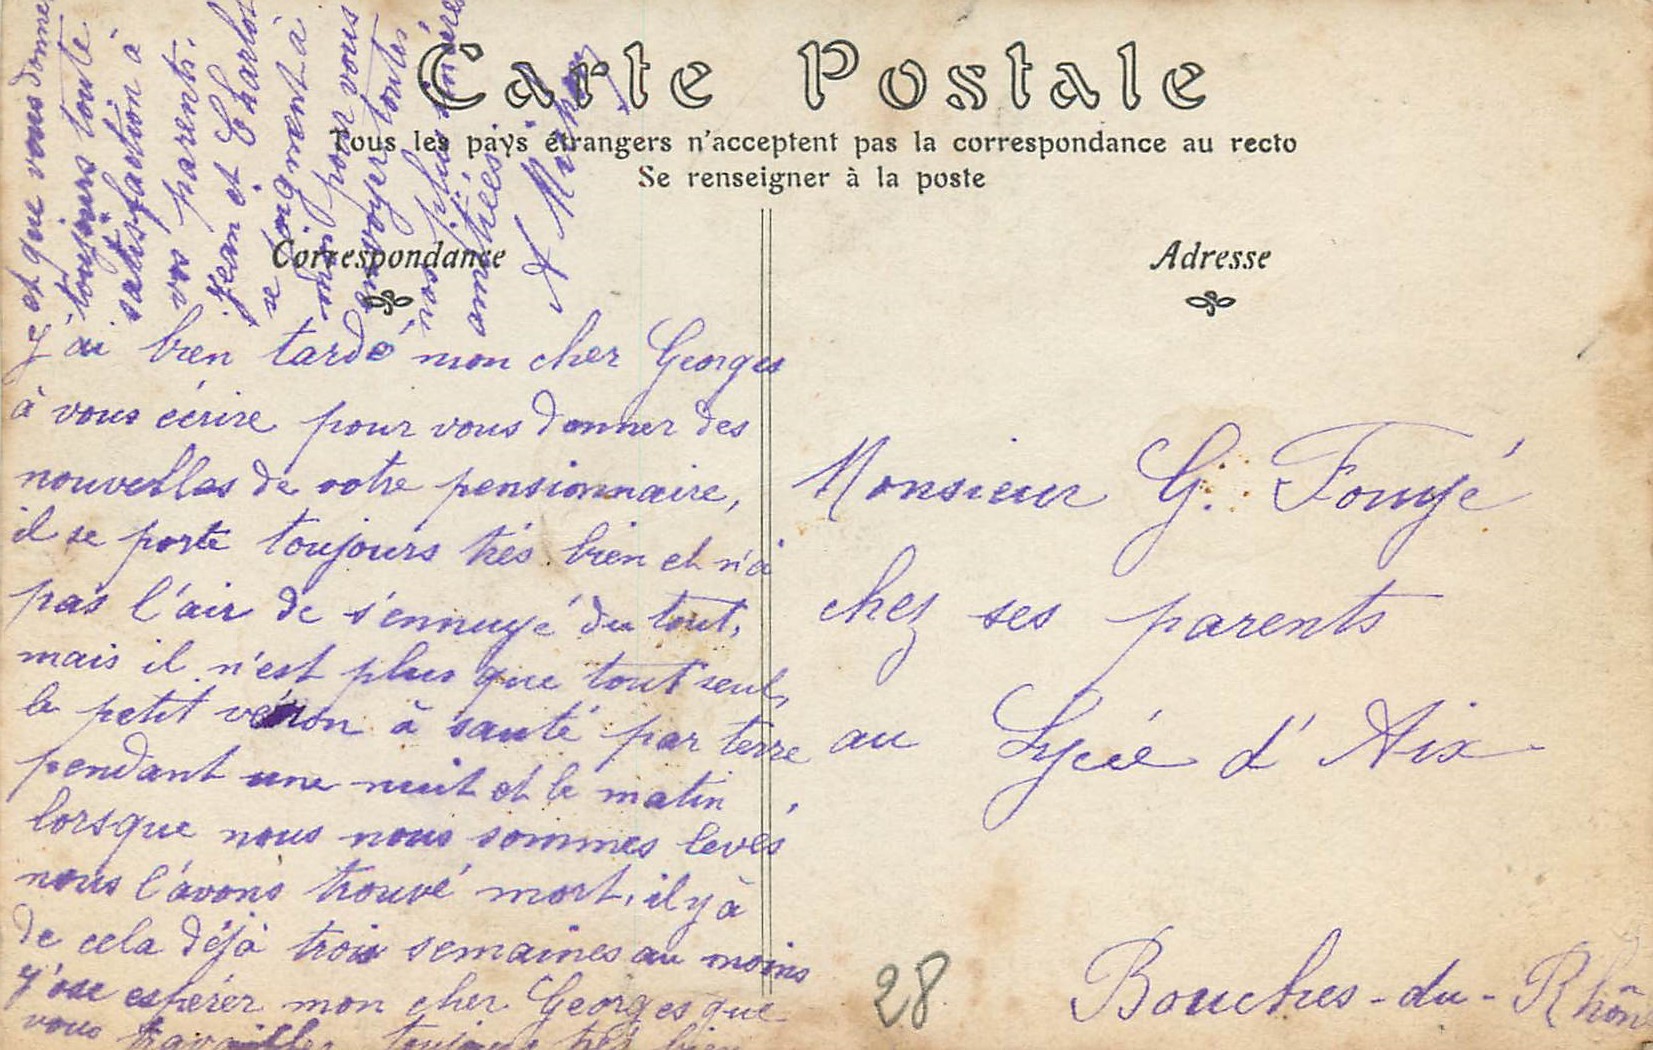 Carte Postale
Tous les pays étrangers n'acceptent pas la correspondance au recto
Se renseigner à la poste
Correspondance
Adresse
J'ai bien tardé mon cher Georges
à vous écrire pour vous donner des
nouvelles de votre pensionnaire,
il se porte toujours très bien et n'à
pas l'air de s'ennuyé du tout,
mais il n'est plus que tout seul,
le petit à sauté par terre
pendant une nuit et le matin
lorsque nous nous sommes levés
nous l'avons trouvé mort, il y à
de cela déjà trois semaines au moins
J'ose espérer mon cher Georges que
vous travailler toujours très bien
et que vous donne
toujours toute
satisfaction à
vos parents.
Jean et Charlot
se joignent à
moi pour vous
envoyer toutes
nos plus sincères
amitiées
Monsieur G. Fouyé
chez ses parents
au Lycée d'Aix
Bouches-du-Rhône
28